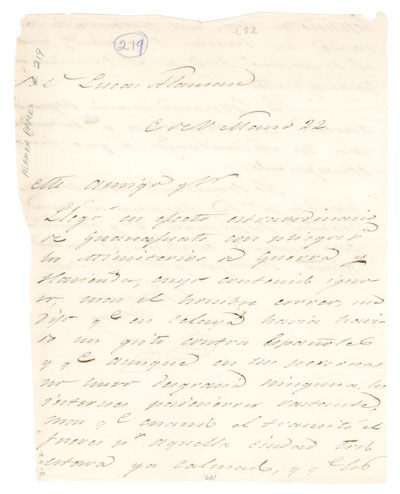 219
232
Alaman Papers # 219
Sr Lucas Alaman
C de V. Marzo 22
Mi amigo y Sr
Llegó en efecto extraordinario
de Guanajuato con pliegos pa
los Ministerios de Guerra y
Hacienda, cuyo contenido igno-
ro, mas el hombre correo, me
dijo qe en Celaya havia havi-
do un grito contra Españoles
y qe aunque en sus personas
no hubo desgracia ninguna, los
intereses padecieron bastante,
mas qe cuando el transito el
Jueves pr aquella ciudad todo
estava ya calmado, y qe los